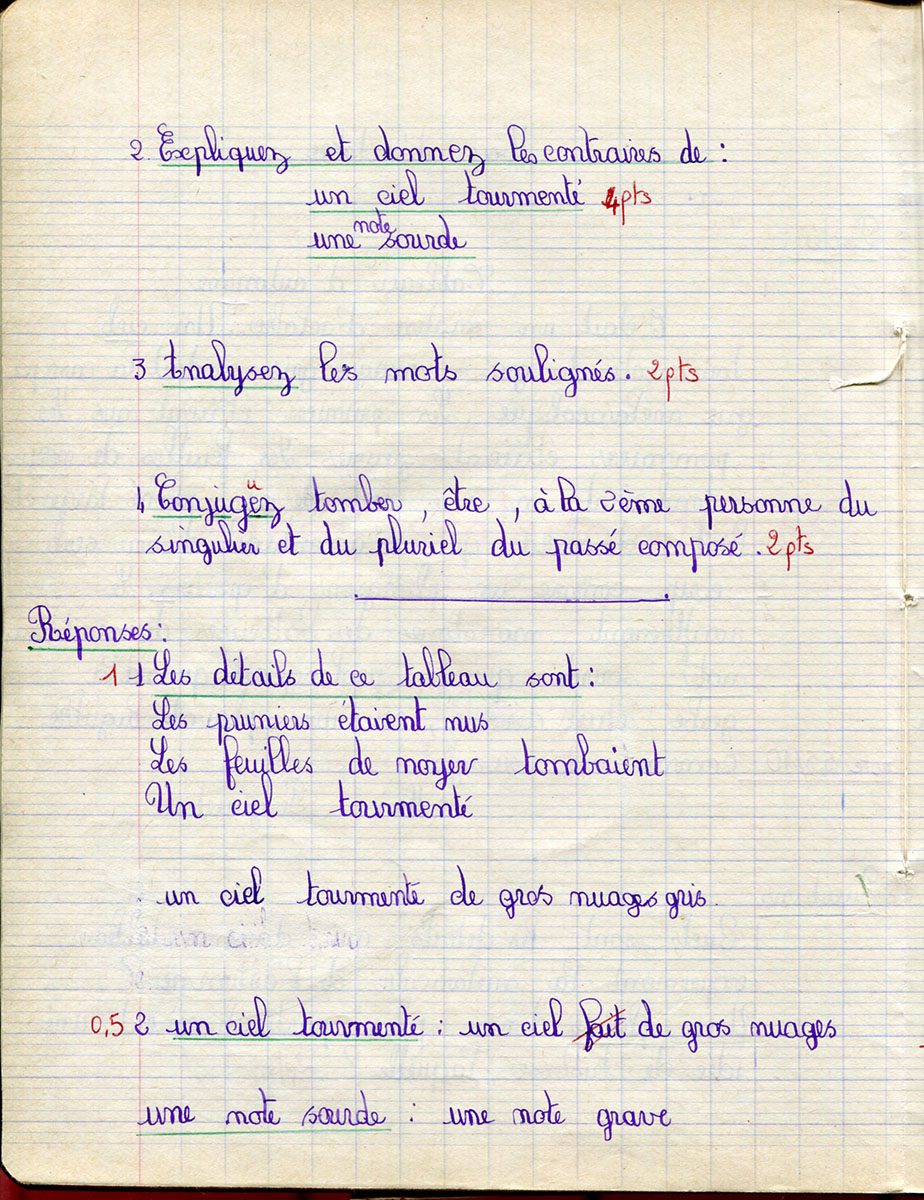 2. Expliquez et donnez les contraires de :
un ciel tourmenté 4pts
une note sourde
3 Analysez les mots soulignés. 2pts
4 Conjugëz tomber, être, à la 2ème personne du
singulier et du pluriel du passé composé. 2pts
Réponses :
1 1 Les détails de ce tableau sont :
Les pruniers étaient nus
Les feuilles de noyer tombaient
Un ciel tourmenté
un ciel tourmente de gros nuages gris.
0,5 2 un ciel tourmenté : un ciel fait de gros nuages
une note sourde : une note grave